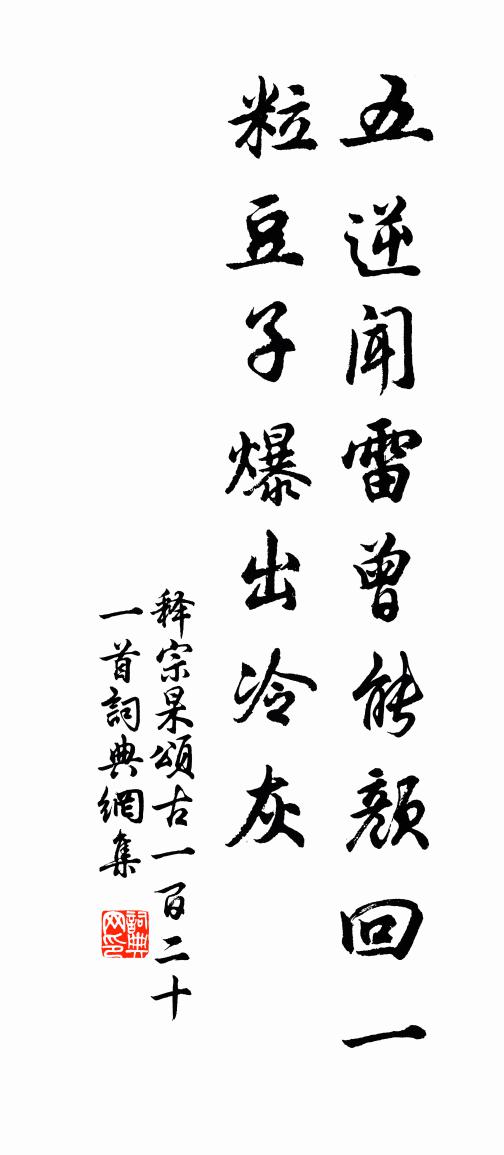 五逆闻雷曾能颜回一
粒豆子爆出冷灰
释宗杲頌古一百二十
一首詞典網集
詞典网印